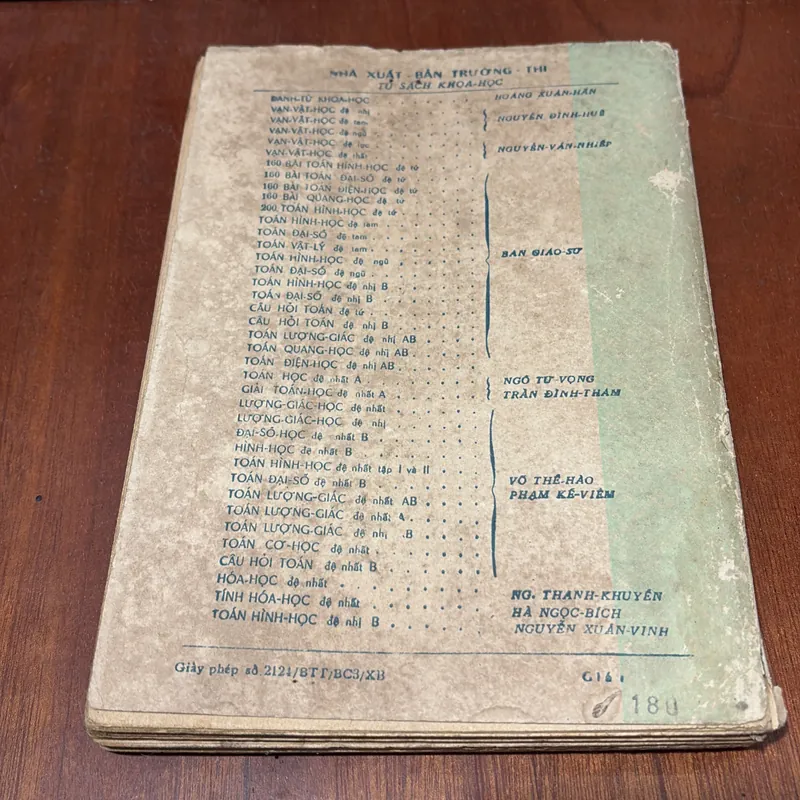 NHÀ XUẤT - BẢN TRƯỜNG - THI
TỦ SÁCH KHOA-HỌC
DANH-TỪ KHOA-HỌC . . . . . . . HOÀNG XUÂN-HÃN
VẠN-VẬT-HỌC đệ nhị
VẠN-VẬT-HỌC đệ tam NGUYỄN ĐÌNH-HUÊ
VẠN-VẬT-HỌC đệ ngũ
VẠN-VẬT-HỌC đệ lục NGUYỄN-VĂN-NHIẾP
VẠN-VẬT-HỌC đệ thất
160 BÀI TOÁN HÌNH-HỌC đệ tứ
160 BÀI TOÁN ĐẠI-SỐ đệ tứ
160 BÀI TOÁN ĐIỆN-HỌC đệ tứ
160 BÀI QUANG-HỌC đệ tứ
200 TOÁN HÌNH-HỌC đệ tứ
TOÁN HÌNH-HỌC đệ tam
TOÁN ĐẠI-SỐ đệ tam
TOÁN VẬT-LÝ đệ tam BAN GIÁO-SƯ
TOÁN HÌNH-HỌC đệ ngũ
TOÁN ĐẠI-SỐ đệ ngũ
TOÁN HÌNH-HỌC đệ nhị B
TOÁN ĐẠI-SỐ đệ nhị B
CÂU HỎI TOÁN đệ tứ
CÂU HỎI TOÁN đệ nhị B
TOÁN LƯỢNG-GIÁC đệ nhị AB
TOÁN QUANG-HỌC đệ nhị AB
TOÁN ĐIỆN-HỌC đệ nhị AB
TOÁN HỌC đệ nhất A NGÔ TƯ-VỌNG
GIẢI TOÁN-HỌC đệ nhất A TRẦN ĐÌNH-THÁM
LƯỢNG-GIÁC-HỌC đệ nhất
LƯỢNG-GIÁC-HỌC đệ nhị
ĐẠI-SỐ-HỌC đệ nhất B
HÌNH-HỌC đệ nhất B
TOÁN HÌNH-HỌC đệ nhất tập I và II
TOÁN ĐẠI-SỐ đệ nhất B VÕ THẾ-HÀO
TOÁN LƯỢNG-GIÁC đệ nhất AB PHẠM KẾ-VIÊM
TOÁN LƯỢNG-GIÁC đệ nhất A
TOÁN LƯỢNG-GIÁC đệ nhị .B
TOÁN CƠ-HỌC đệ nhất
CÂU HỎI TOÁN đệ nhất B
HÓA-HỌC đệ nhất NG. THANH-KHUYẾN
TÍNH HÓA-HỌC đệ nhất HÀ NGỌC-BÍCH
TOÁN HÌNH-HỌC đệ nhị B NGUYỄN XUÂN-VINH
Giấy phép số 2124/BTT/BC3/XB
180